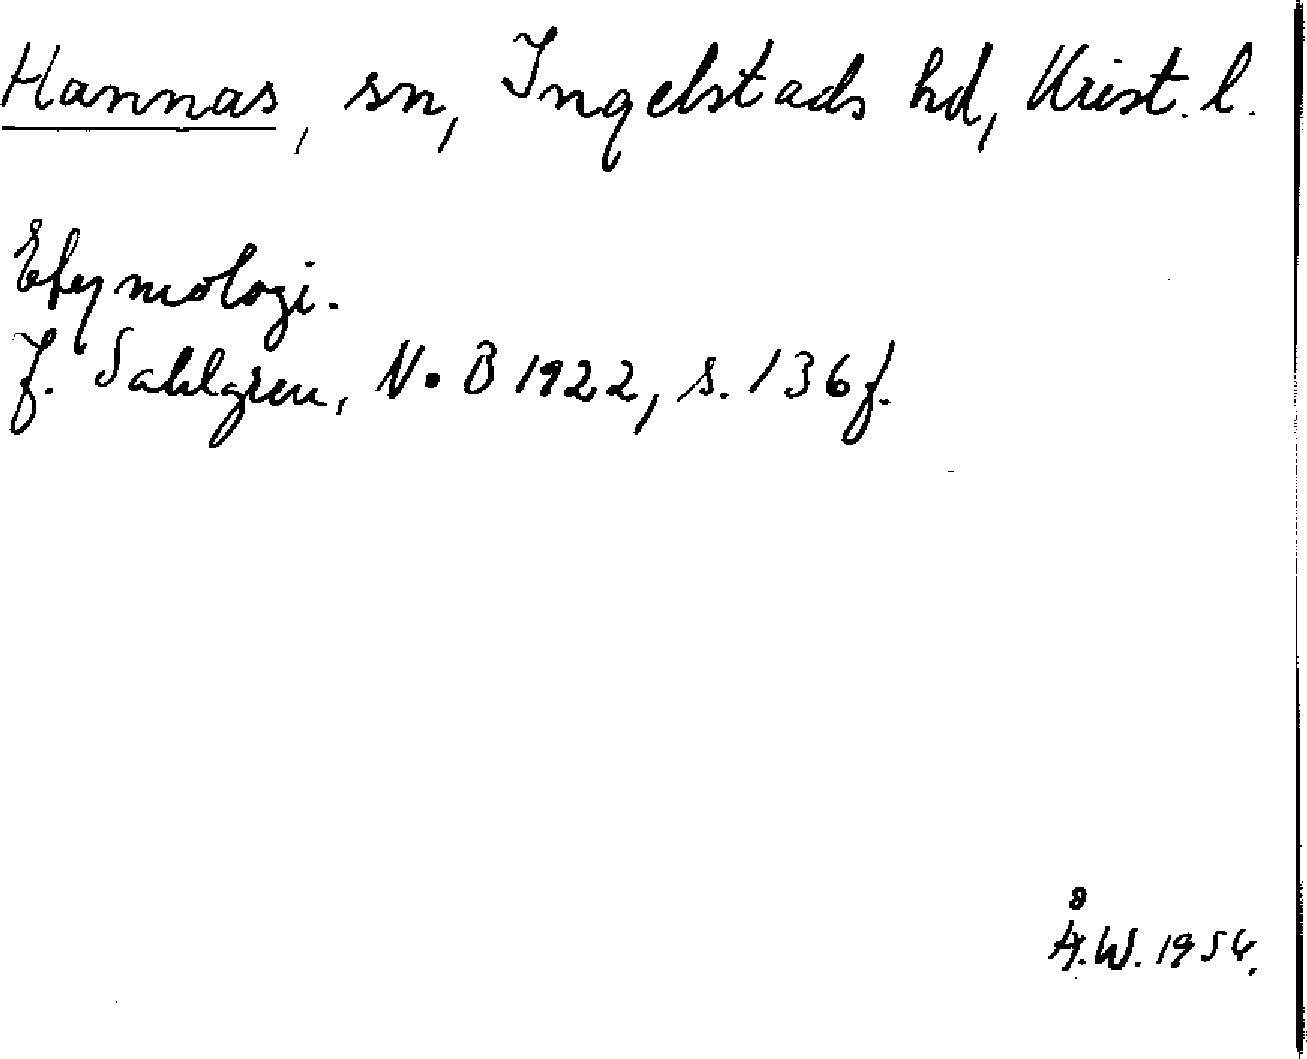 Hannas, sn, Ingelstads hd, Krist. l.
Etymologi.
J. Sahlgren, NoB 1922, s. 136 f.
Å.W. 1954.